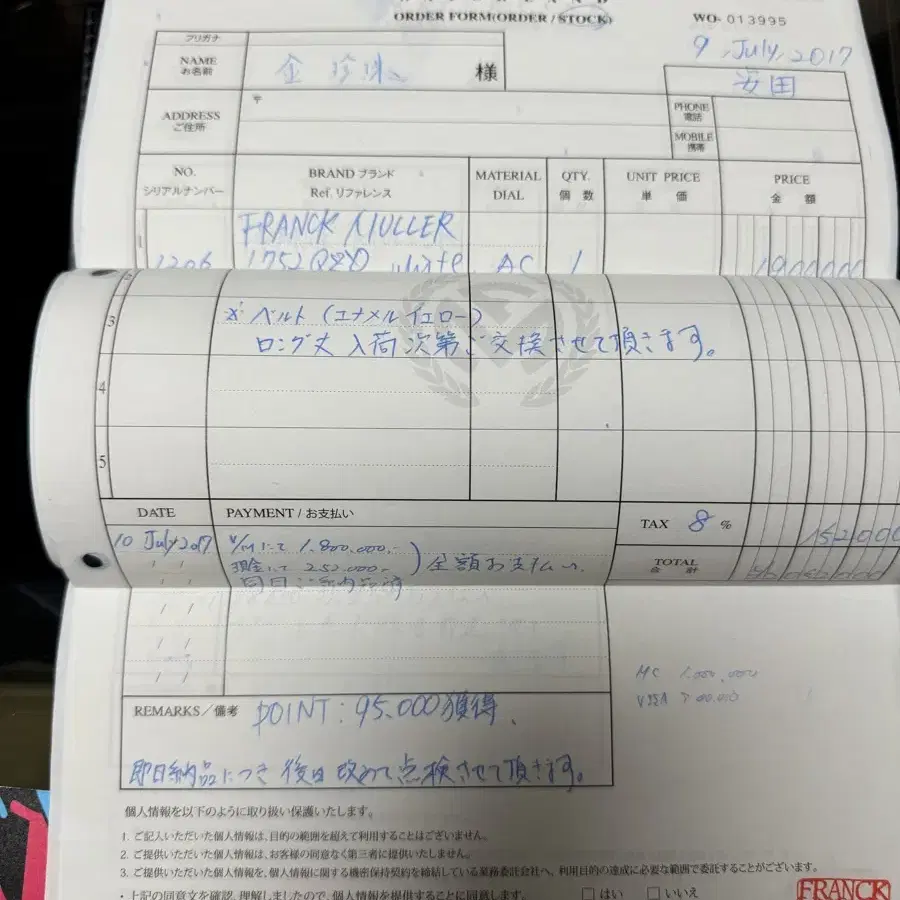 ORDER FORM(ORDER / STOCK)
WO- 013995
9 July, 2017
フリガナ
NAME
お名前
金 珍珠
様
安田
ADDRESS
ご住所
〒
PHONE
電話
MOBILE
携帯
NO.
シリアルナンバー
BRAND ブランド
Ref. リファレンス
MATERIAL
DIAL
QTY.
個 数
UNIT PRICE
単 価
PRICE
金 額
1
FRANCK MULLER
1206
1752QZD white
AC
1
1900000
3
※ ベルト (エナメルイエロー)
ロング丈 入荷次第ご交換させて頂きます。
4
5
DATE
PAYMENT / お支払い
TAX 8 %
152000
10 July 2017
V/Mにて 1.800.000.-
現金にて 252.000.-
全額お支払い
TOTAL
合 計
MC 1.000.000
VISA
REMARKS／備考
POINT : 95.000獲得.
即日納品につき 後日 改めて点検させて頂きます。
個人情報を以下のように取り扱い保護いたします。
1. ご記入いただいた個人情報は、目的の範囲を超えて利用することはございません。
2. ご提供いただいた個人情報は、お客様の同意なく第三者に提供いたしません。
3. ご提供いただいた個人情報を、個人情報に関する機密保持契約を締結している業務委託会社へ、利用目的の達成に必要な範囲で委託することがございます。
・上記の同意文を確認、理解しましたので、個人情報を提供することに同意します。
□ はい
□ いいえ
FRANCK